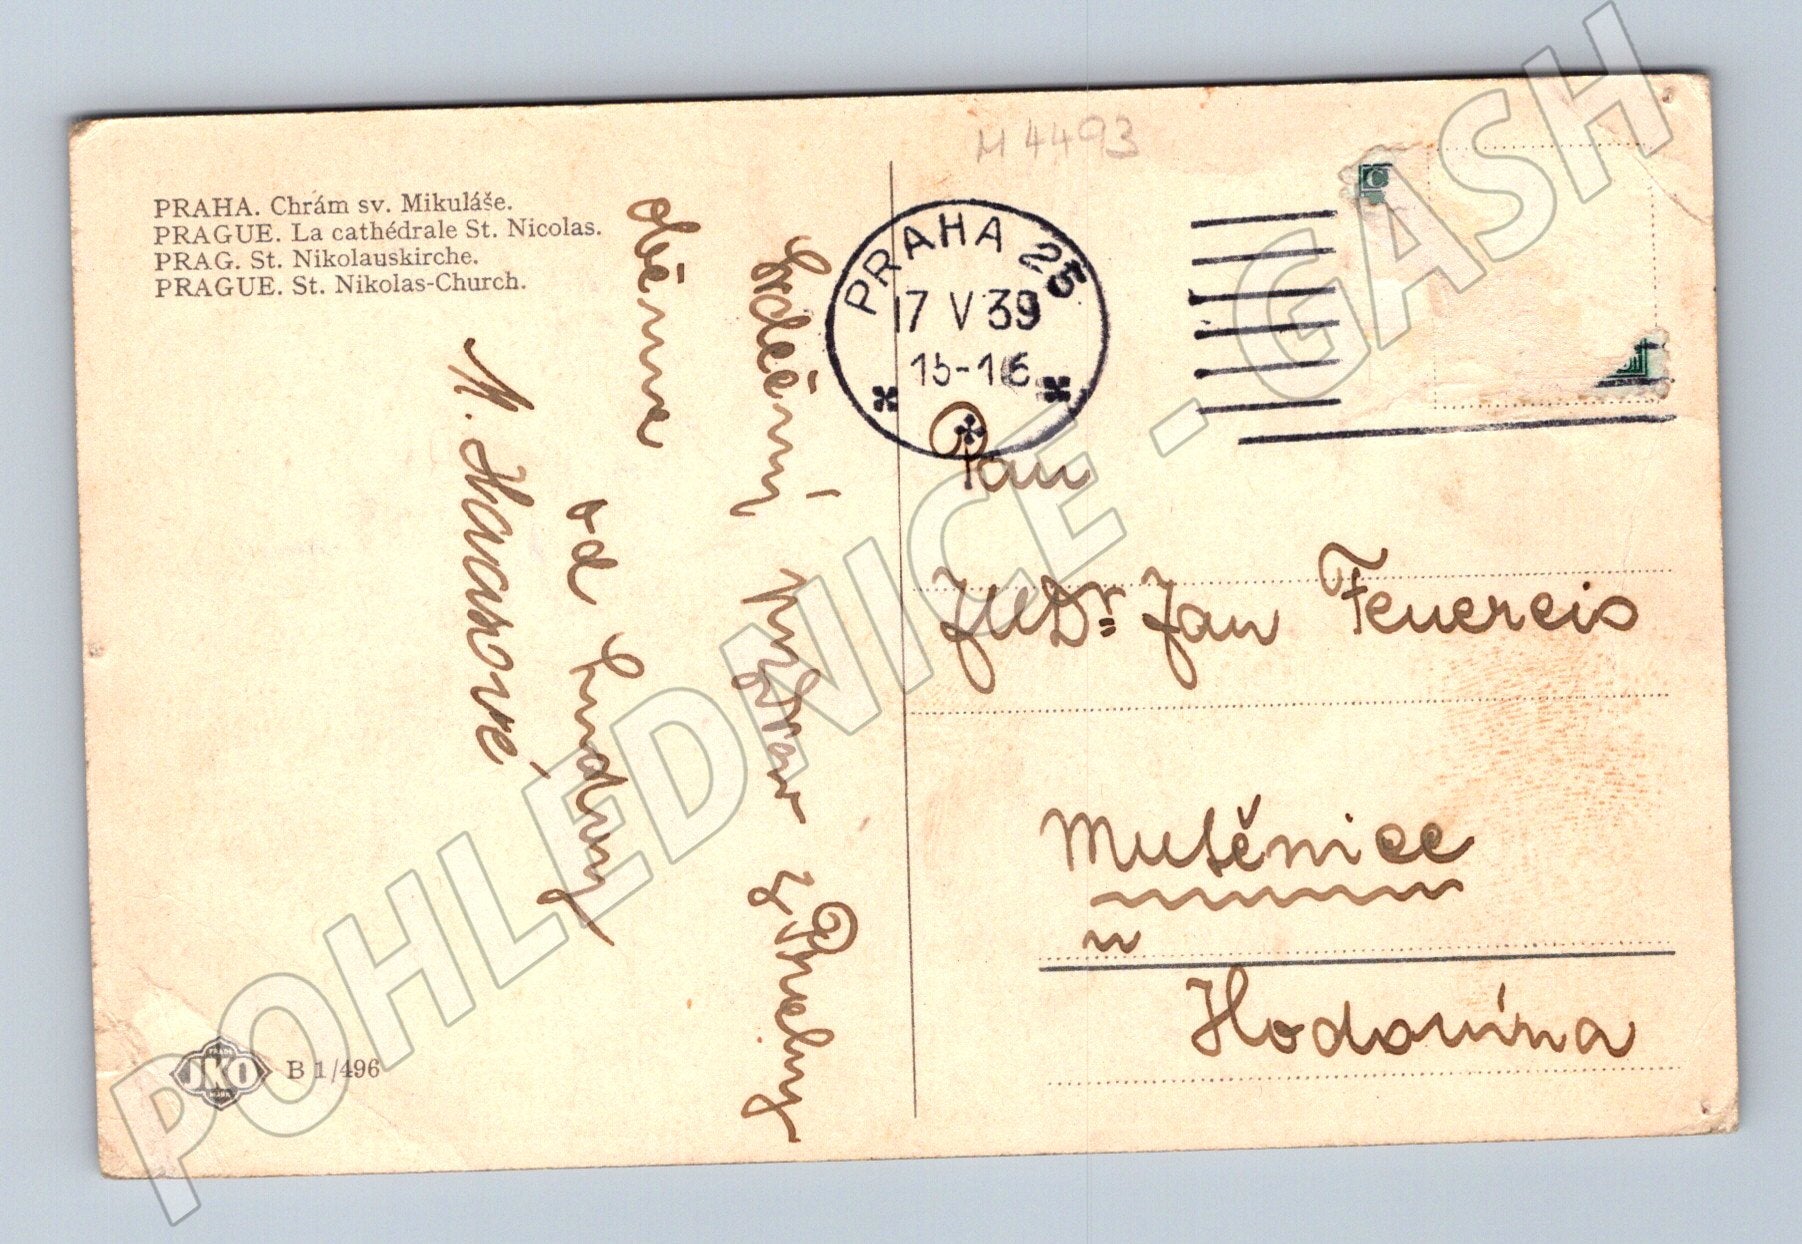 M 4493
PRAHA. Chrám sv. Mikuláše.
PRAGUE. La cathédrale St. Nicolas.
PRAG. St. Nikolauskirche.
PRAGUE. St. Nikolas-Church.
PRAHA 25
17 V 39
15-16
Srdečný pozdrav z Prahy
oběma
od Ludvy
Pan
JUDr Jan Feuereis
Mutěnice
u
Hodonína
JKO
B 1/496
POHLEDNICE - GASH